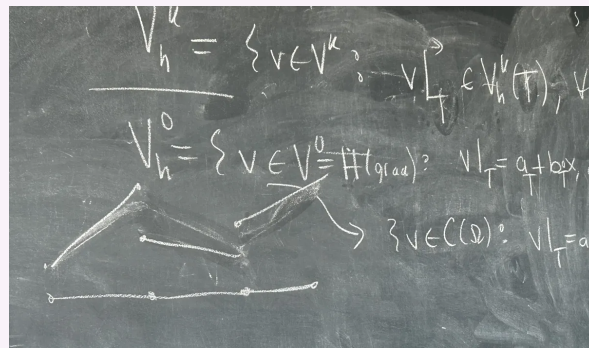 V_h^k = { v ∈ V^k : v|_T ∈ V_h^k(T), ∀
V_h^0 = { v ∈ V^0 = H(grad) : v|_T = a_T + b_T x,
{ v ∈ C(Ω) : v|_T = a